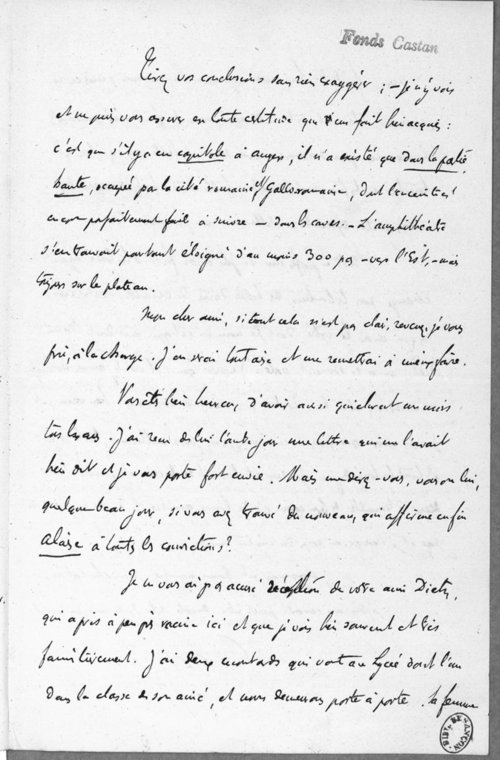 Fonds Castan
Tirez vos conclusions sans rien exagérer ; – je n'y vois
et ne puis vous assurer en toute certitude que d'un fait bien acquis :
c'est que s'il y a eu capitole à angers, il n'a existé que dans la partie
haute, occupée par la cité romaine et Gallo romaine, dont l'enceinte est
encore parfaitement facile à suivre – dans les caves. – L'amphithéâtre
s'en trouvait partant éloigné d'au moins 300 pas – vers l'Est, – mais
toujours sur le plateau.
Mon cher ami, si tout cela n'est pas clair, revenez, je vous
prie, à la charge. J'en serai tout aise et me remettrai à mieux faire.
Vous êtes bien heureux d'avoir ainsi Quicherat un mois
tous les ans. J'ai reçu de lui l'autre jour une lettre qui me l'avait
bien dit et je vous porte fort envie. Mais me direz-vous, vous ou lui,
quelque beau jour, si vous avez trouvé du nouveau, qui affirme enfin
Alaise à toutes les convictions ?
Je ne vous ai pas accusé réception de votre ami Dietz,
qui a pris à peu près racine ici et que je vois bien souvent et très
familièrement. J'ai deux moutards qui vont au Lycée dont l'un
dans la classe de son aîné, et nous demeurons porte à porte. Sa femme